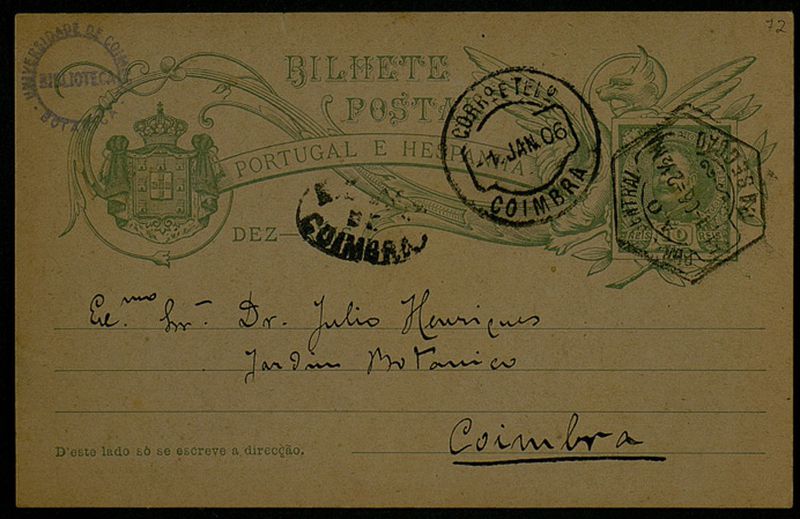 72
UNIVERSIDADE DE COIMBRA
BIBLIOTECA
BILHETE
POSTAL
PORTUGAL E HESPANHA
CORRº E TELº
JAN. 06
COIMBRA
CENTRAL
2ª SECÇÃO
REIS
DEZ
DE
COIMBRA
Ex.mo Sr. Dr. Julio Henriques
Jardim Botanico
Coimbra
D'este lado só se escreve a direcção.